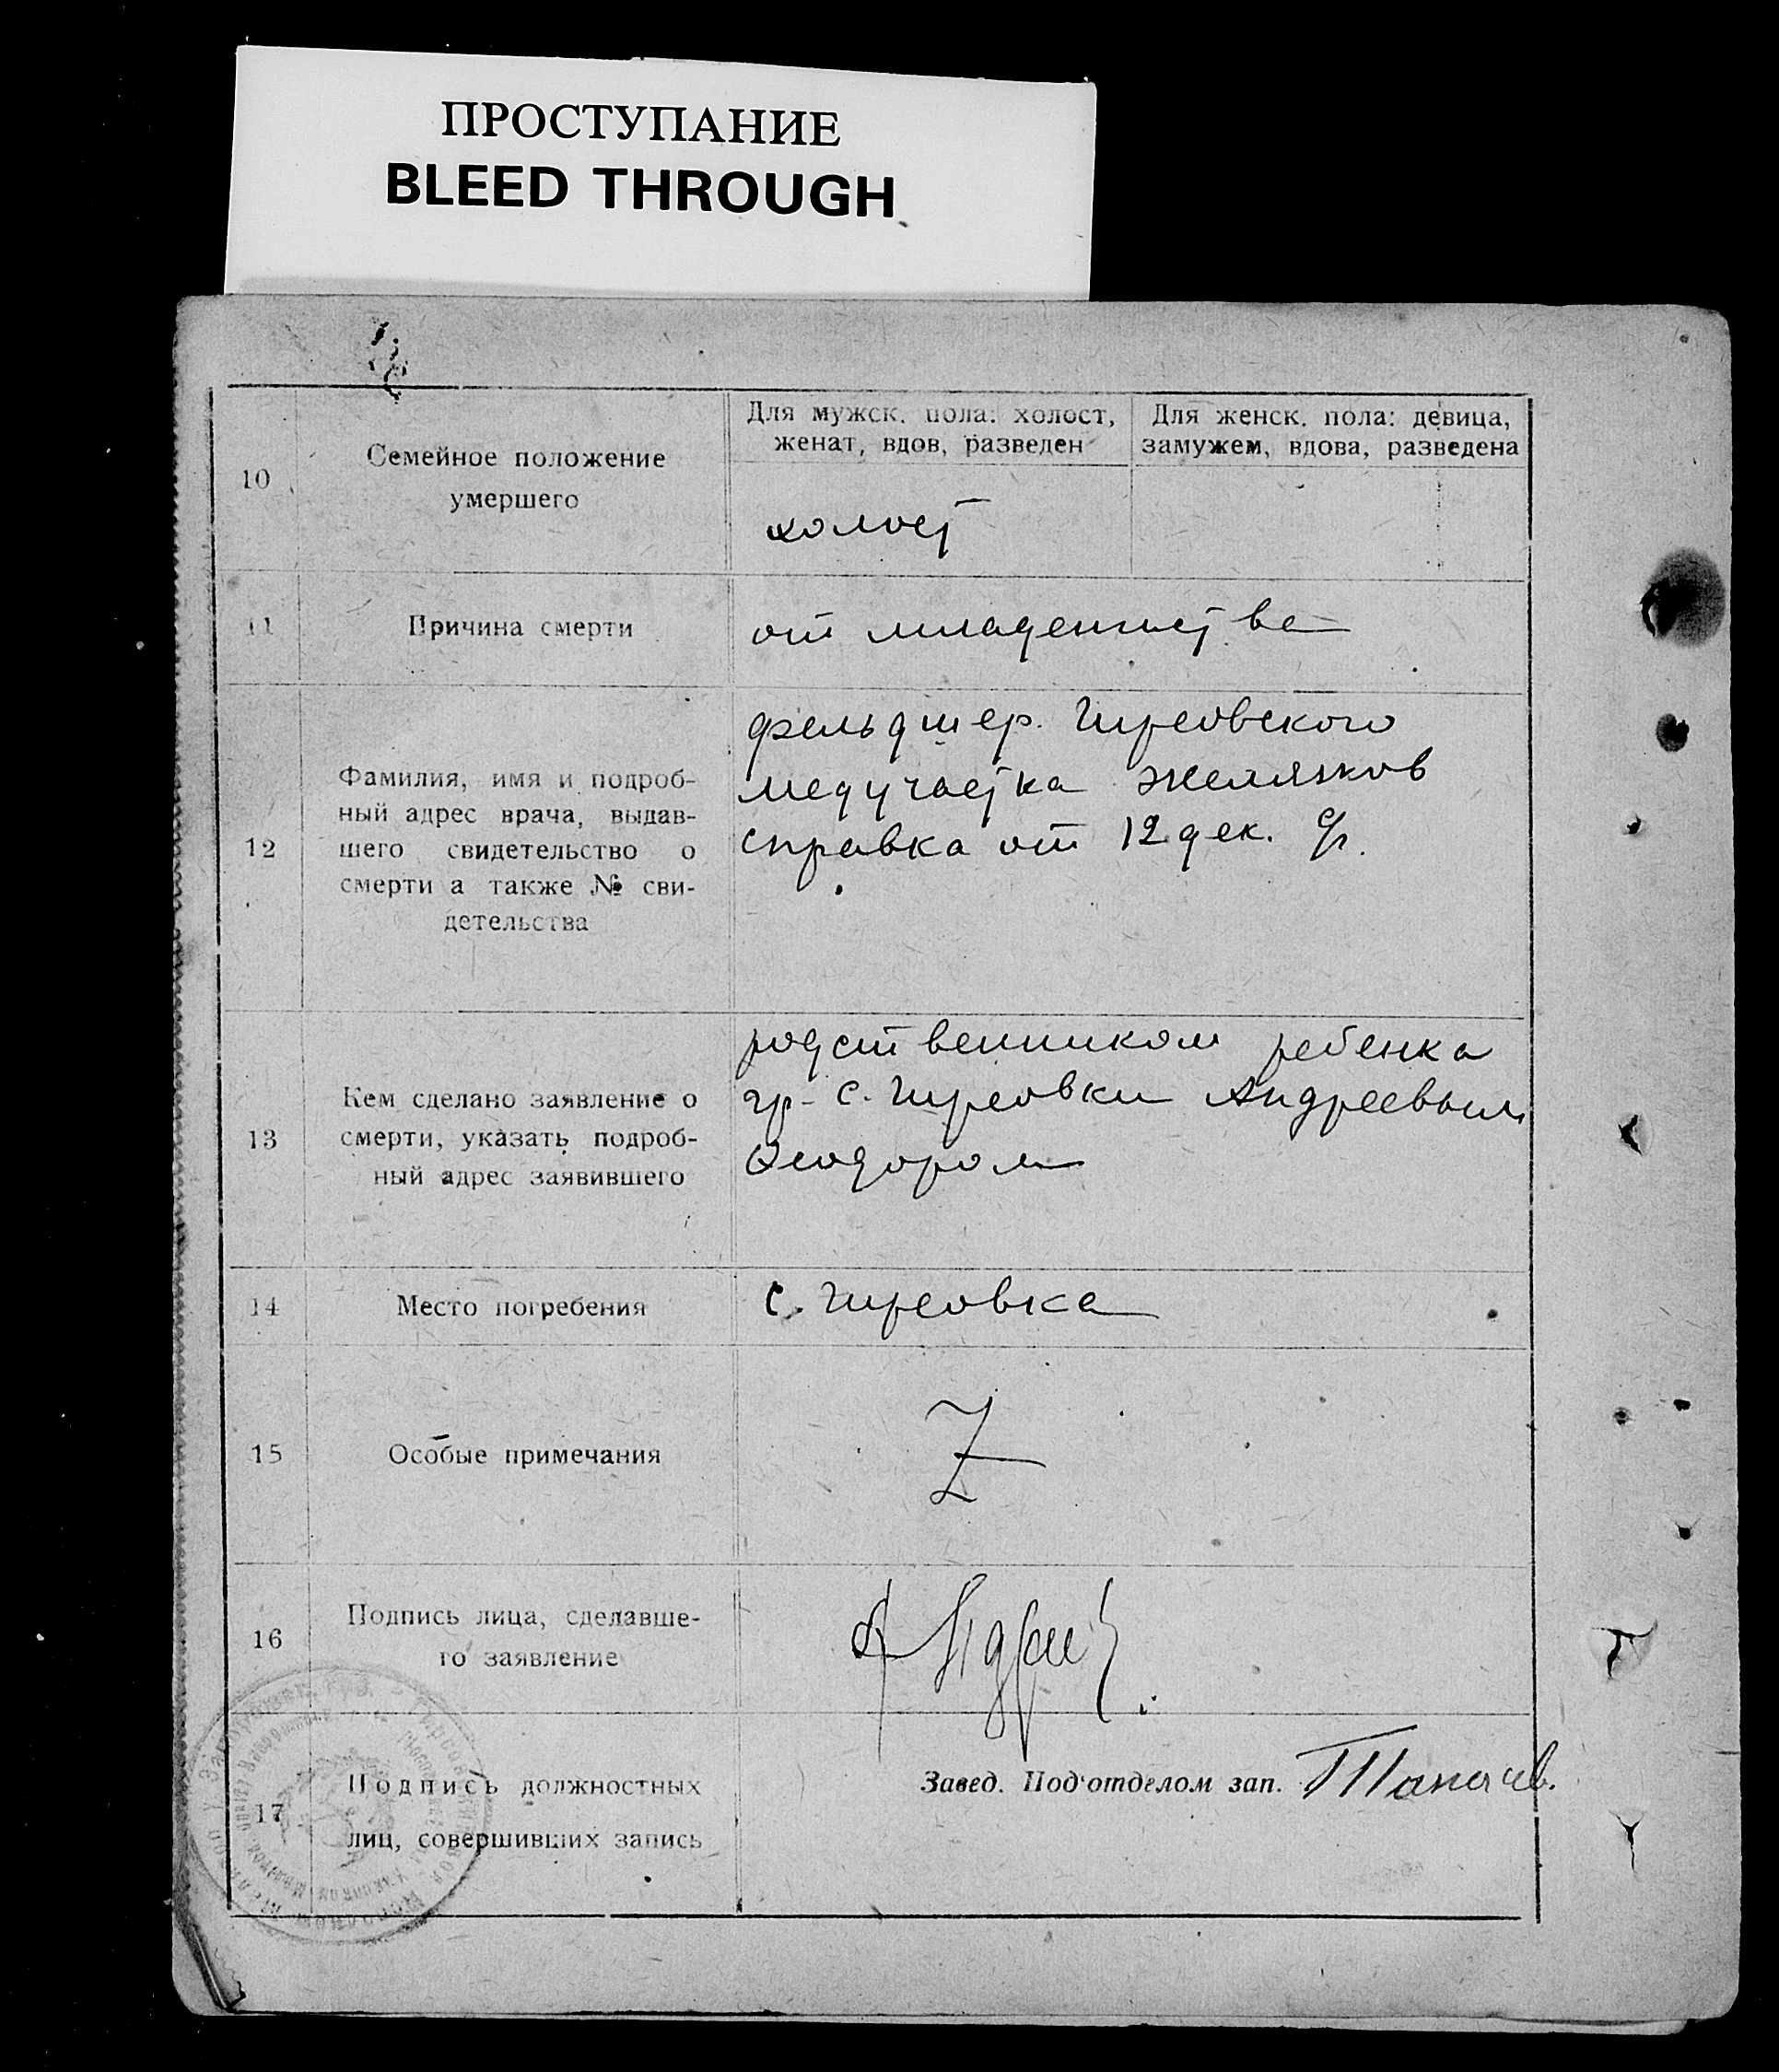 ПРОСТУПАНИЕ
BLEED THROUGH
10
Семейное положение
умершего
Для мужск. пола: холост,
женат, вдов, разведен
Для женск. пола: девица,
замужем, вдова, разведена
холост
11
Причина смерти
от младенчества
12
Фамилия, имя и подроб-
ный адрес врача, выдав-
шего свидетельство о
смерти а также № сви-
детельства
фельдшер. Гиреовского
медучастка Желязков
справка от 12 дек. с/г.
13
Кем сделано заявление о
смерти, указать подроб-
ный адрес заявившего
родственником ребенка
гр- с. Гиреовки Андреевым
Феодором
14
Место погребения
с. Гиреовка
15
Особые примечания
Z
16
Подпись лица, сделавше-
го заявление
17
Подпись должностных
лиц, совершивших запись
Завед. Подотделом зап.